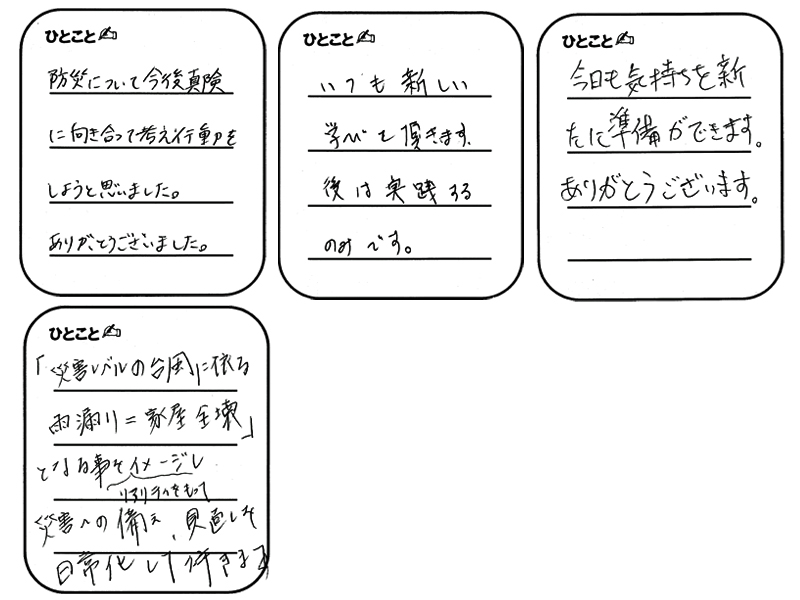 ひとこと
防災について今後真険
に向き合って考え行動を
しようと思いました。
ありがとうございました。
ひとこと
いつも新しい
学びを頂きます。
後は実践する
のみです。
ひとこと
今日も気持ちを新
たに準備ができます。
ありがとうございます。
ひとこと
「災害レベルの台風に依る
雨漏り=家屋全壊」
となる事をイメージし
リアリティをもって
災害への備え、見直しを
日常化して行きます